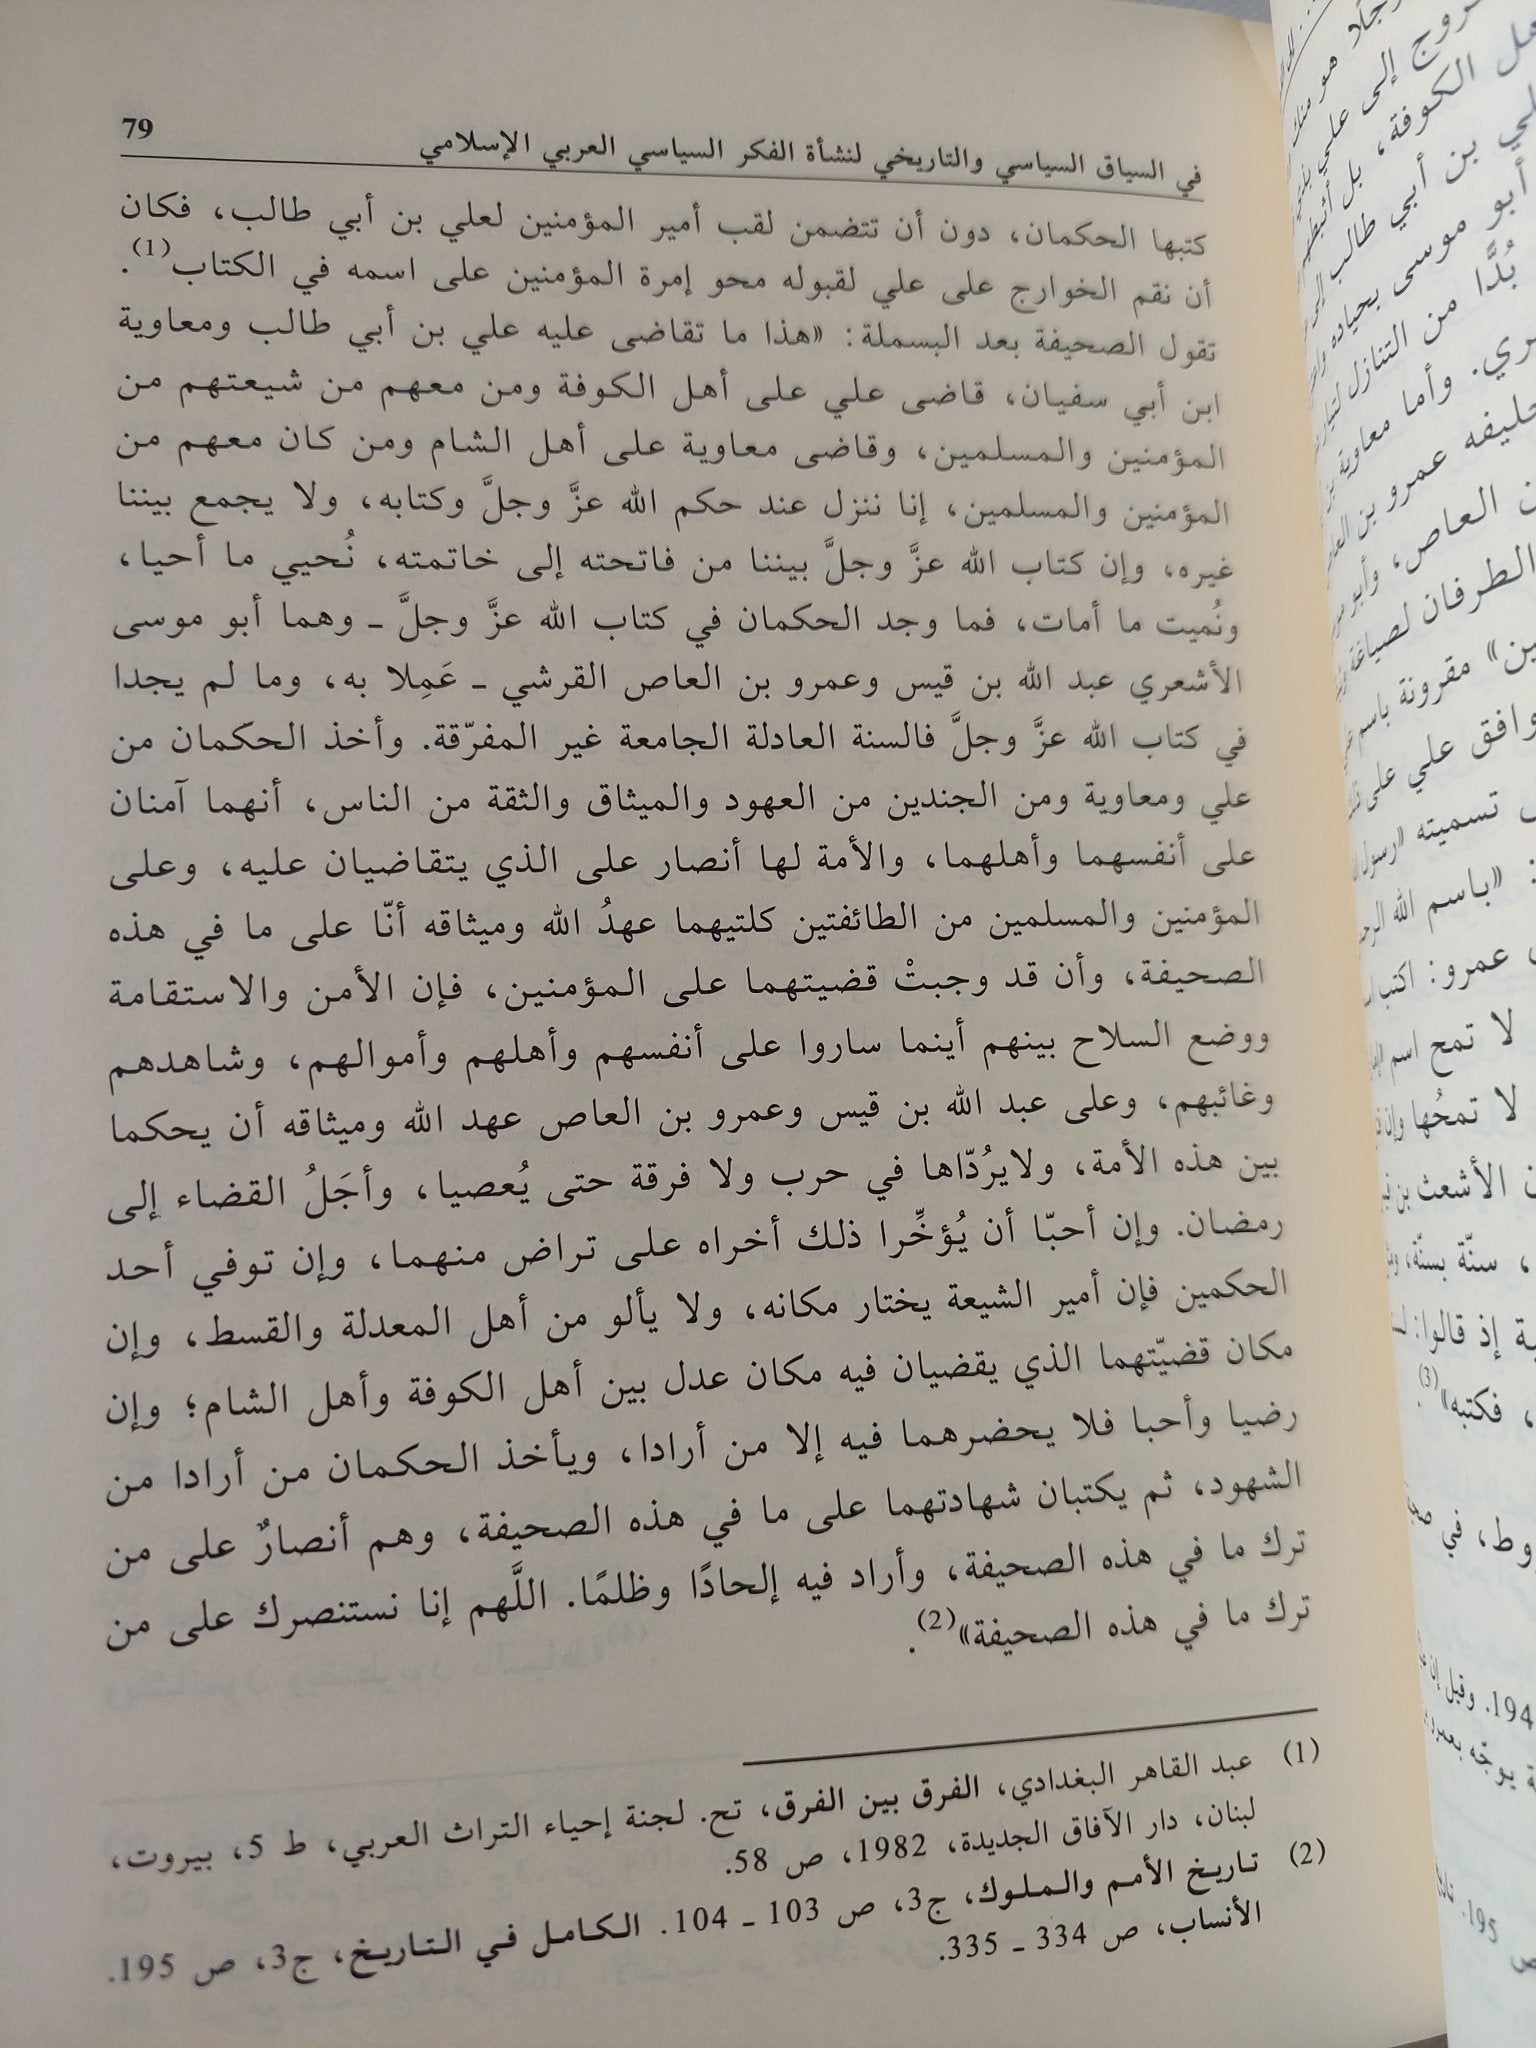 في السياق السياسي والتاريخي لنشأة الفكر السياسي العربي الإسلامي 79
كتبها الحكمان، دون أن تتضمن لقب أمير المؤمنين لعلي بن أبي طالب، فكان
أن نقم الخوارج على علي لقبوله محو إمرة المؤمنين على اسمه في الكتاب(1).
تقول الصحيفة بعد البسملة: «هذا ما تقاضى عليه علي بن أبي طالب ومعاوية
ابن أبي سفيان، قاضى علي على أهل الكوفة ومن معهم من شيعتهم من
المؤمنين والمسلمين، وقاضى معاوية على أهل الشام ومن كان معهم من
المؤمنين والمسلمين، إنا ننزل عند حكم الله عزَّ وجلَّ وكتابه، ولا يجمع بيننا
غيره، وإن كتاب الله عزَّ وجلَّ بيننا من فاتحته إلى خاتمته، نُحيي ما أحيا،
ونُميت ما أمات، فما وجد الحكمان في كتاب الله عزَّ وجلَّ ـ وهما أبو موسى
الأشعري عبد الله بن قيس وعمرو بن العاص القرشي ـ عَمِلا به، وما لم يجدا
في كتاب الله عزَّ وجلَّ فالسنة العادلة الجامعة غير المفرّقة. وأخذ الحكمان من
علي ومعاوية ومن الجندين من العهود والميثاق والثقة من الناس، أنهما آمنان
على أنفسهما وأهلهما، والأمة لها أنصار على الذي يتقاضيان عليه، وعلى
المؤمنين والمسلمين من الطائفتين كلتيهما عهدُ الله وميثاقه أنّا على ما في هذه
الصحيفة، وأن قد وجبتْ قضيتهما على المؤمنين، فإن الأمن والاستقامة
ووضع السلاح بينهم أينما ساروا على أنفسهم وأهلهم وأموالهم، وشاهدهم
وغائبهم، وعلى عبد الله بن قيس وعمرو بن العاص عهد الله وميثاقه أن يحكما
بين هذه الأمة، ولايرُدّاها في حرب ولا فرقة حتى يُعصيا، وأجَلُ القضاء إلى
رمضان. وإن أحبّا أن يُؤخِّرا ذلك أخراه على تراض منهما، وإن توفي أحد
الحكمين فإن أمير الشيعة يختار مكانه، ولا يألو من أهل المعدلة والقسط، وإن
مكان قضيّتهما الذي يقضيان فيه مكان عدل بين أهل الكوفة وأهل الشام؛ وإن
رضيا وأحبا فلا يحضرهما فيه إلا من أرادا، ويأخذ الحكمان من أرادا من
الشهود، ثم يكتبان شهادتهما على ما في هذه الصحيفة، وهم أنصارٌ على من
ترك ما في هذه الصحيفة، وأراد فيه إلحادًا وظلمًا. اللَّهم إنا نستنصرك على من
ترك ما في هذه الصحيفة»(2).
(1) عبد القاهر البغدادي، الفرق بين الفرق، تح. لجنة إحياء التراث العربي، ط 5، بيروت،
لبنان، دار الآفاق الجديدة، 1982، ص 58.
(2) تاريخ الأمم والملوك، ج3، ص 103 ـ 104. الكامل في التاريخ، ج3، ص 195.
الأنساب، ص 334 ـ 335.